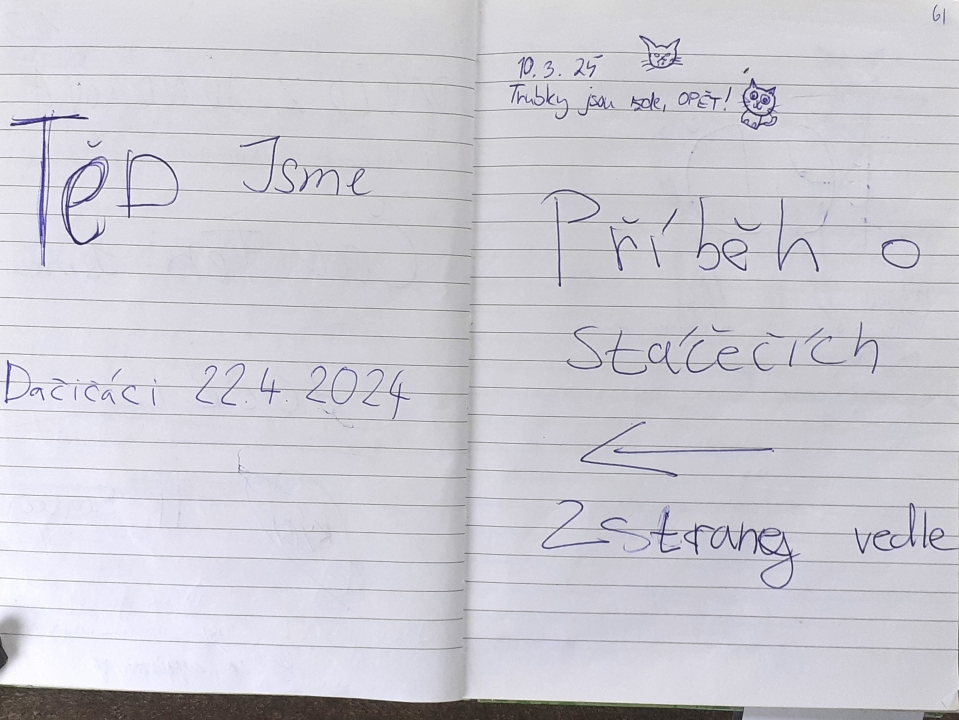 TěD Jsme
Dačičáci 22.4.2024
61
10.3.25
Trubky jsou zde, OPĚT!
Příběh o
stáčečích
2 straney vedle